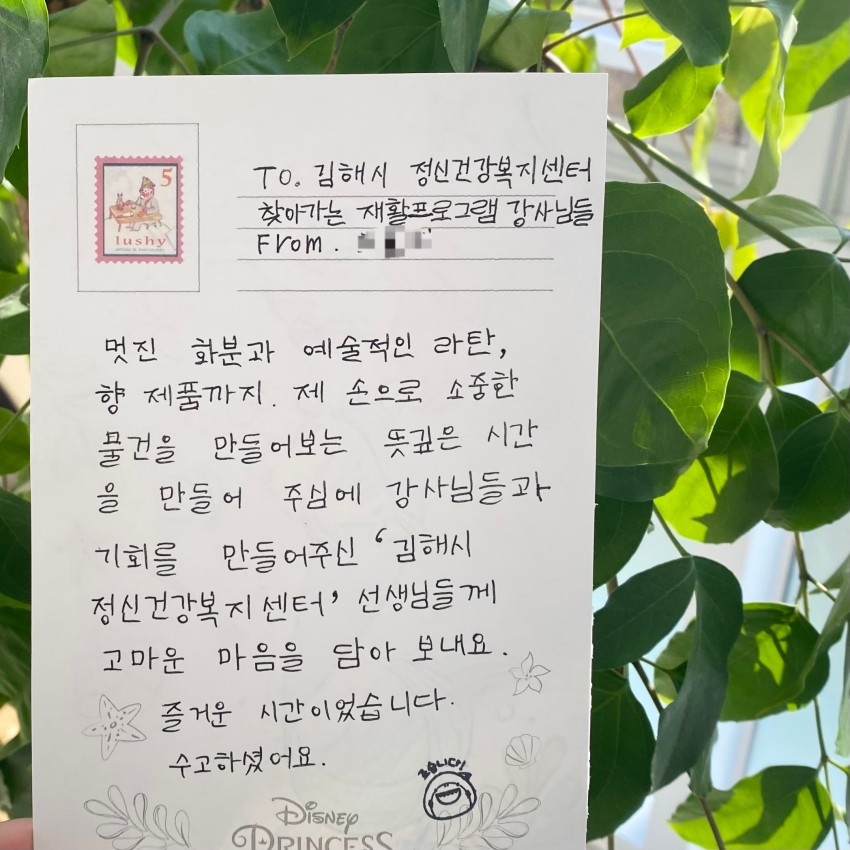 5
lushy
TO. 김해시 정신건강복지센터
찾아가는 재활프로그램 강사님들
From.
멋진 화분과 예술적인 라탄,
향 제품까지. 제 손으로 소중한
물건을 만들어보는 뜻깊은 시간
을 만들어 주심에 강사님들과
기회를 만들어주신 '김해시
정신건강복지센터' 선생님들께
고마운 마음을 담아 보내요.
즐거운 시간이었습니다.
수고하셨어요.
DISNEY
PRINCESS